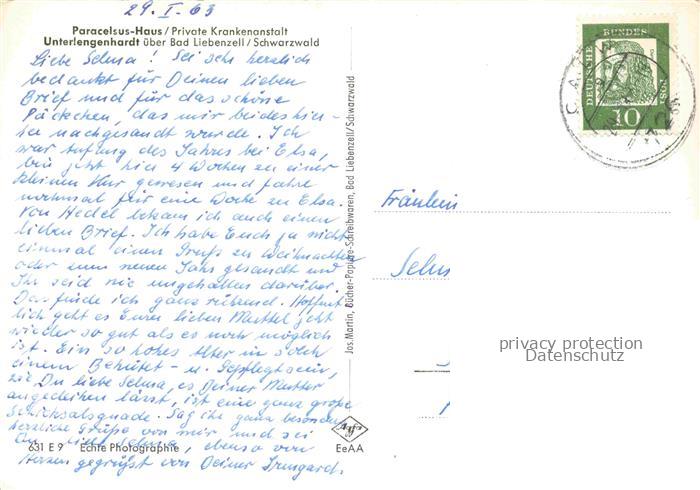 29. I. 63
Paracelsus-Haus / Private Krankenanstalt
Unterlengenhardt über Bad Liebenzell / Schwarzwald
Liebe Selma! Sei sehr herzlich
bedankt für Deinen lieben
Brief und für das schöne
Päckchen, das mir beides hier-
her nachgesandt wurde. Ich
war Anfang des Jahres bei Elsa,
bin jetzt hier 4 Wochen zu einer
kleinen Kur gewesen und fahre
nochmal für eine Woche zu Elsa.
Von Hedel bekam ich auch einen
lieben Brief. Ich habe Euch ja nicht
einmal einen Gruß zu Weihnachten
oder zum neuen Jahr gesandt und
Ihr seid nie ungehalten darüber.
Das finde ich ganz rührend. Hoffent
lich geht es Eurer lieben Muttel jetzt
wieder so gut als es noch möglich
ist. Ein so hohes Alter in solch
einem Behütet- u. Gepflegtsein,
wie Du liebe Selma, es Deiner Mutter
angedeihen lässt, ist eine ganz große
Schicksalsgnade. Sag ihr ganz besonders
herzliche Grüße von mir und sei
Du, liebe Selma, ebenso von
Herzen gegrüßt von Deiner Irmgard.
631 E 9 Echte Photographie
Agfa
EeAA
Jos. Martin, Bücher-Papiere-Schreibwaren, Bad Liebenzell/Schwarzwald
DEUTSCHE BUNDESPOST
10
Fräulein
Selm
privacy protection
Datenschutz